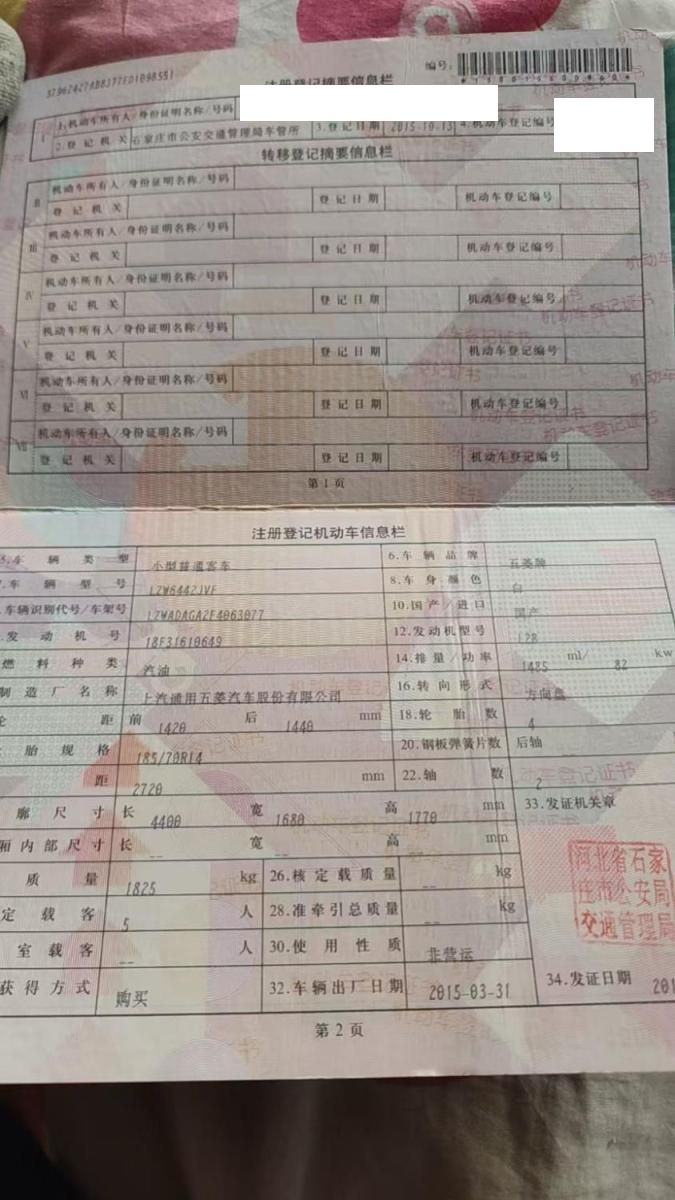 37962427AB8377ED1098551
注册登记摘要信息栏
编号:
I 1.机动车所有人/身份证明名称/号码
2.登记机关 石家庄市公安交通管理局车管所 3.登记日期 2015-10-13 4.机动车登记编号
转移登记摘要信息栏
II 机动车所有人/身份证明名称/号码
登记机关 登记日期 机动车登记编号
III 机动车所有人/身份证明名称/号码
登记机关 登记日期 机动车登记编号
IV 机动车所有人/身份证明名称/号码
登记机关 登记日期 机动车登记编号
V 机动车所有人/身份证明名称/号码
登记机关 登记日期 机动车登记编号
VI 机动车所有人/身份证明名称/号码
登记机关 登记日期 机动车登记编号
VII 机动车所有人/身份证明名称/号码
登记机关 登记日期 机动车登记编号
第1页
注册登记机动车信息栏
5.车辆类型 小型普通客车 6.车辆品牌 五菱牌
.车辆型号 LZW6442JVF 8.车身颜色 白
.车辆识别代号/车架号 LZWADAGA2F4063077 10.国产/进口 国产
.发动机号 18F31610649 12.发动机型号 L2B
燃料种类 汽油 14.排量/功率 1485 ml/ 82 kw
制造厂名称 上汽通用五菱汽车股份有限公司 16.转向形式 方向盘
轮距 前 1420 后 1440 mm 18.轮胎数 4
胎规格 185/70R14 20.钢板弹簧片数 后轴
距 2720 mm 22.轴数 2
廓尺寸 长 4400 宽 1680 高 1770 mm 33.发证机关章
厢内部尺寸 长 -- 宽 -- 高 -- mm
质量 1825 kg 26.核定载质量 -- kg
定载客 5 人 28.准牵引总质量 -- kg
室载客 -- 人 30.使用性质 非营运
获得方式 购买 32.车辆出厂日期 2015-03-31 34.发证日期 201
河北省石家
庄市公安局
交通管理局
第2页